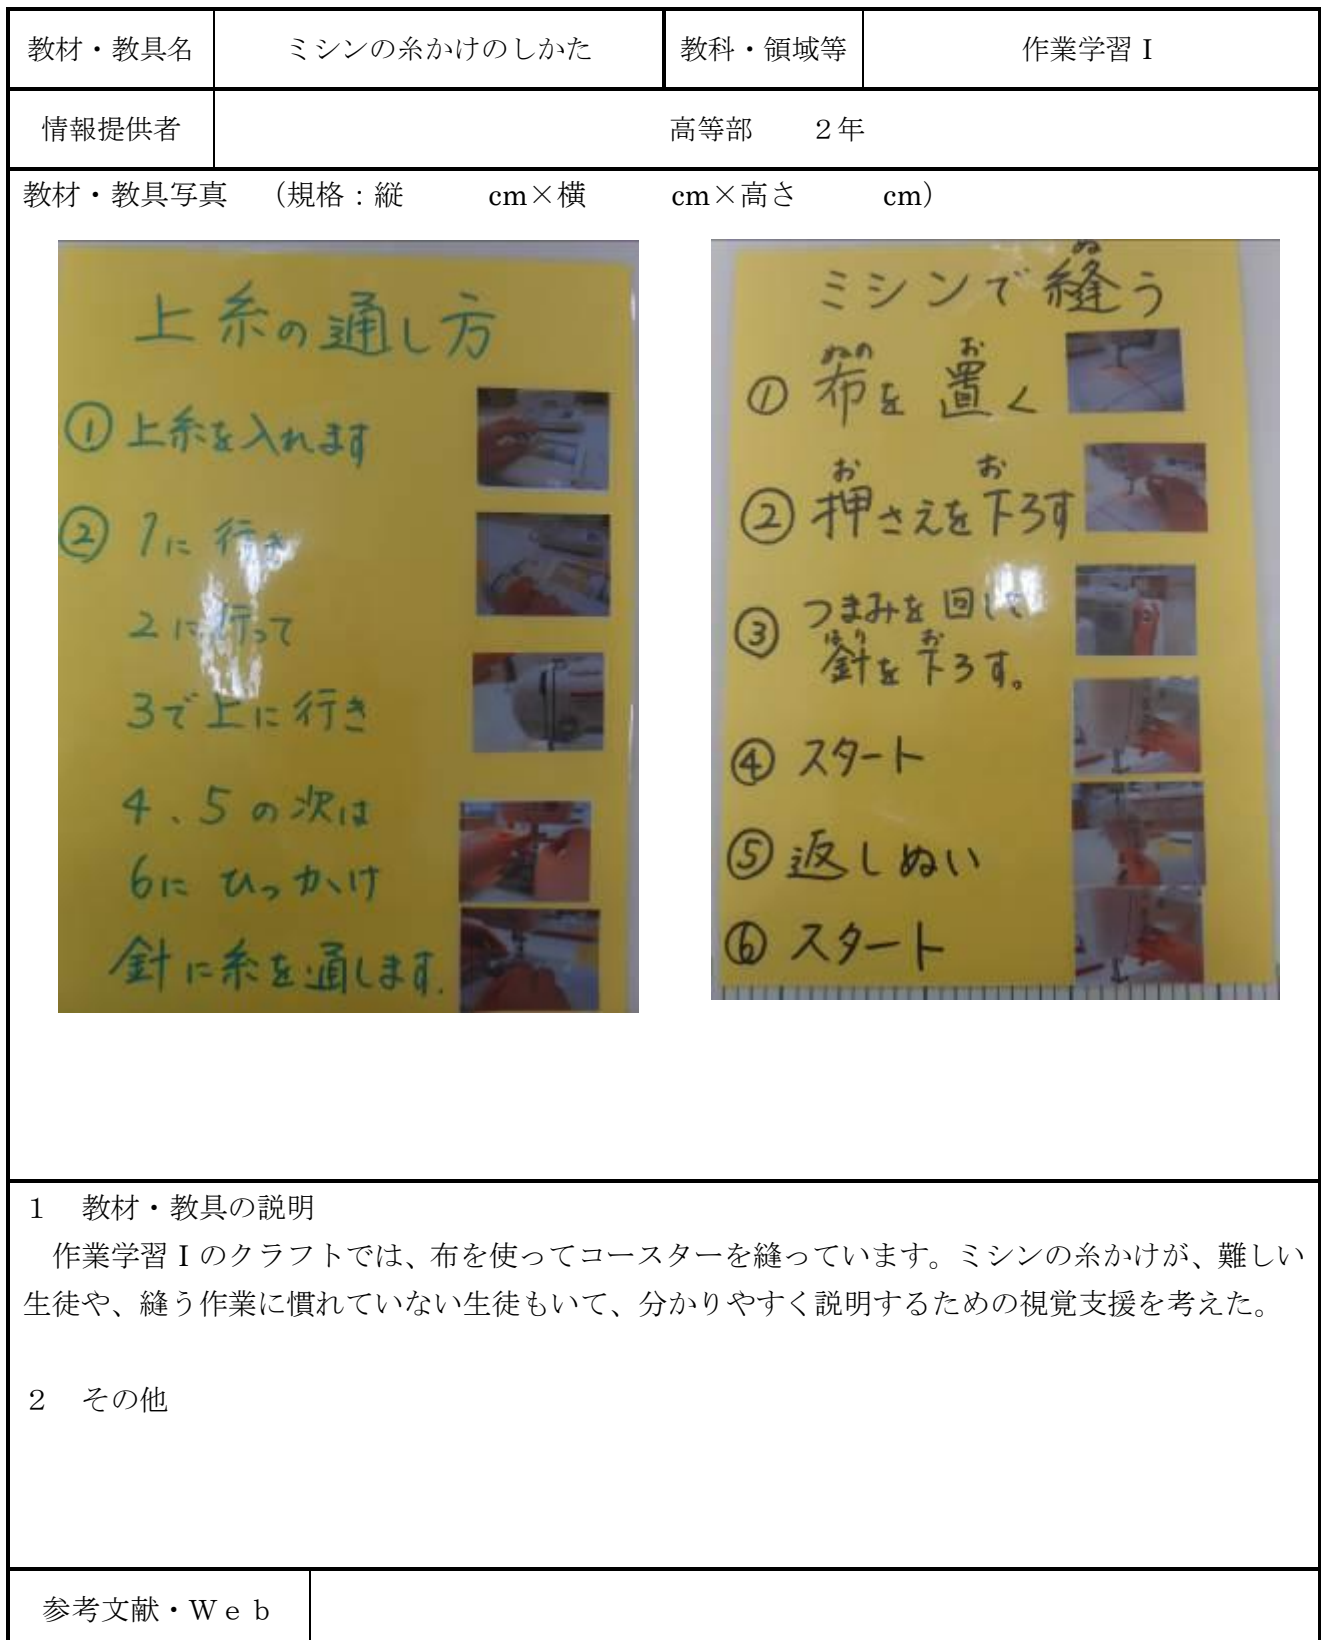 教材・教具名 ミシンの糸かけのしかた 教科・領域等 作業学習Ⅰ
情報提供者 高等部 ２年
教材・教具写真 （規格：縦 cm×横 cm×高さ cm）
上糸の通し方
① 上糸を入れます
② 1に行き
2に行って
3で上に行き
4、5の次は
6にひっかけ
針に糸を通します.
ミシンで縫う
ぬ
① 布を置く
ぬの お
② 押さえを下ろす
お お
③ つまみを回して
針を下ろす。
はり お
④ スタート
⑤ 返しぬい
⑥ スタート
１ 教材・教具の説明
作業学習Ⅰのクラフトでは、布を使ってコースターを縫っています。ミシンの糸かけが、難しい
生徒や、縫う作業に慣れていない生徒もいて、分かりやすく説明するための視覚支援を考えた。
２ その他
参考文献・Ｗｅｂ